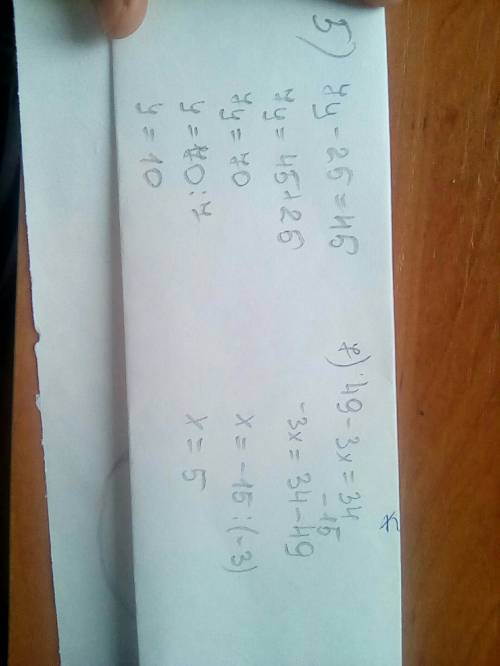 5)
7y - 25 = 45
7y = 45 + 25
7y = 70
y = 70 : 7
y = 10
7) 49 - 3x = 34
-15
-3x = 34 - 49
x = -15 : (-3)
x = 5